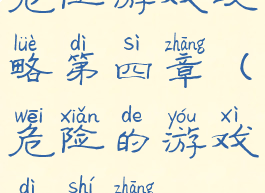 危险游戏攻
lüè dì sì zhāng
略第四章（
wēi xiǎn de yóu xì
危险的游戏
dì shí zhāng